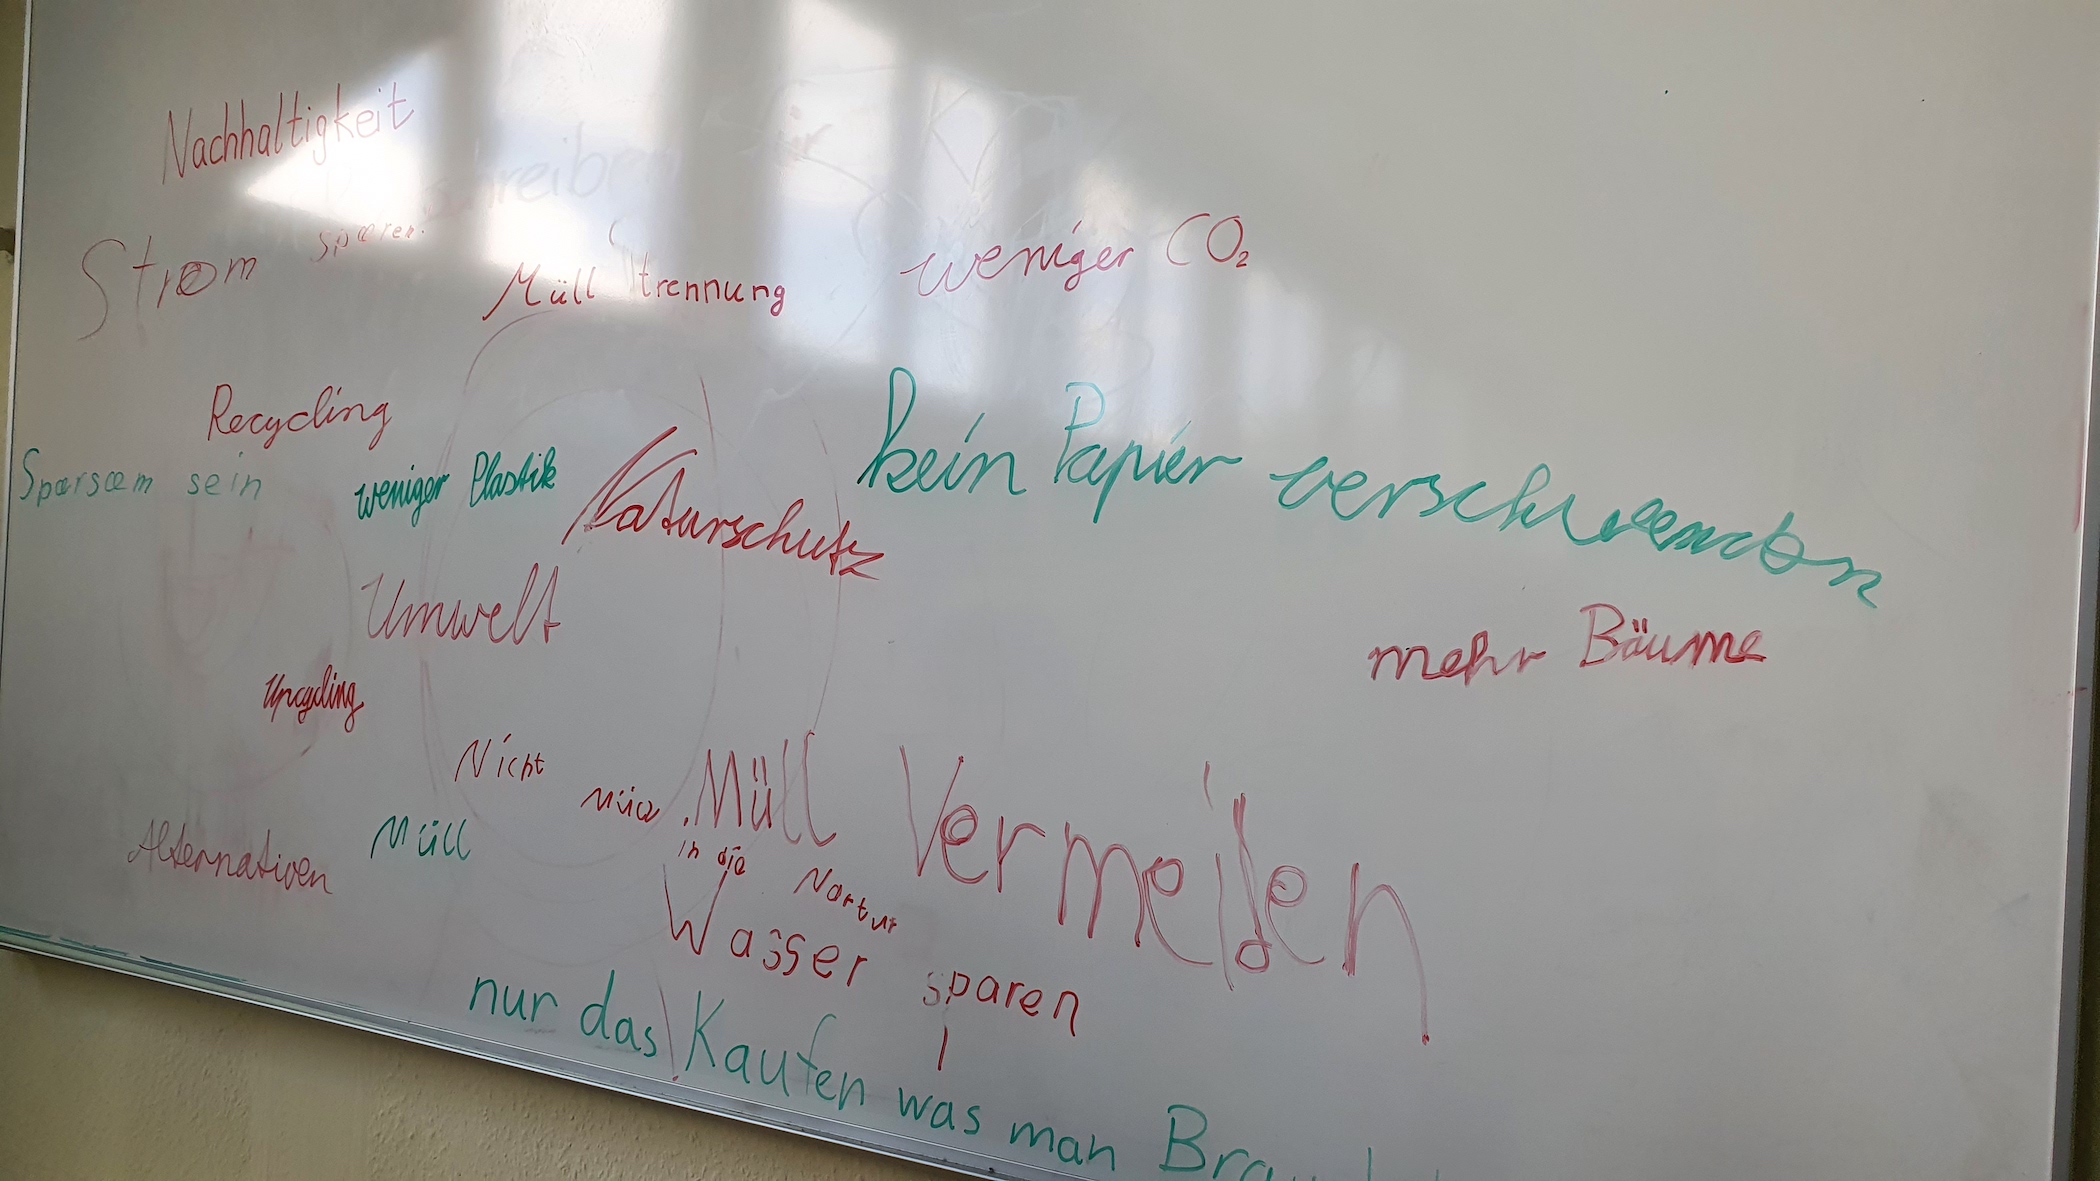 Nachhaltigkeit
Strom sparen!
Müll trennung
weniger CO₂
Recycling
Sparsam sein
weniger Plastik
Naturschutz
kein Papier verschwenden
Umwelt
mehr Bäume
Upcycling
Nicht
Müll
Müll Vermeiden
in die Nartur
Alternativen
Wasser sparen
nur das Kaufen was man